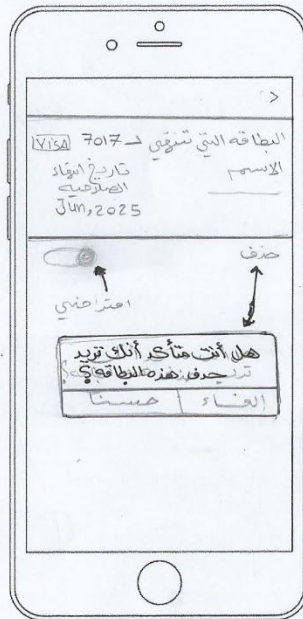 البطاقه التي تنتهي لـ 7017 VISA
الاسم
تاريخ انتهاء
الصلاحيه
Jun, 2025
حذف
افتراضي
هل أنت متأكد أنك تريد
حذف هذه البطاقه؟
إلغاء
حسنا